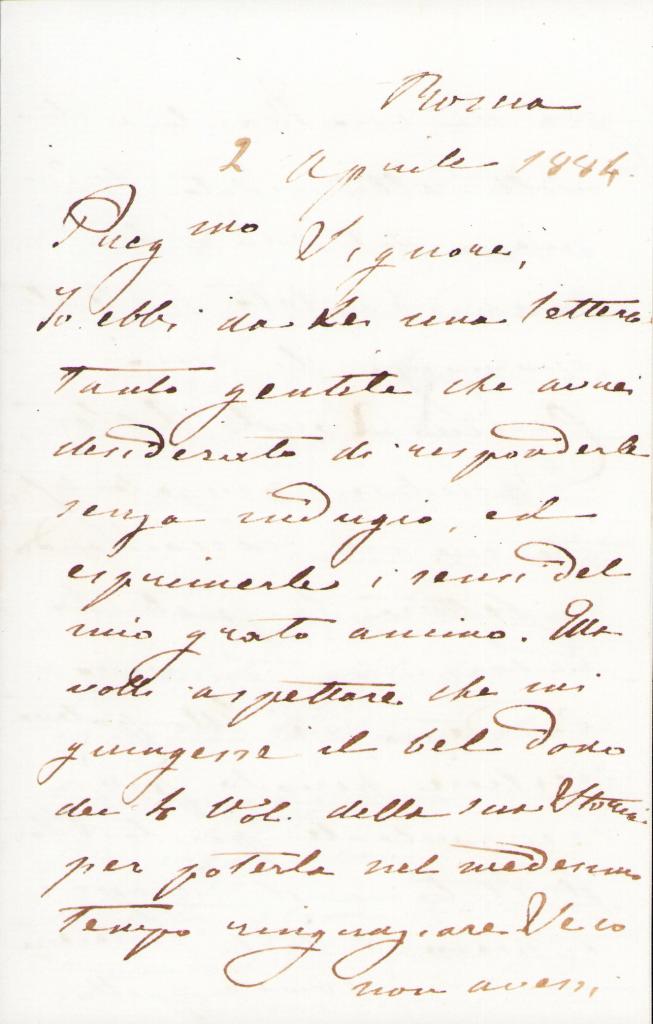 Roma
2 Aprile 1884.
Preg mo Signore,
Io ebbi da Lei una lettera
tanto gentile che avrei
desiderato di risponderle
senza indugio, ed
esprimerle i sensi del
mio grato animo. Ma
volli aspettare che mi
giungesse il bel dono
dei 4 Vol. della sua Storia
per poterla nel medesimo
tempo ringraziare. Se io
non avessi